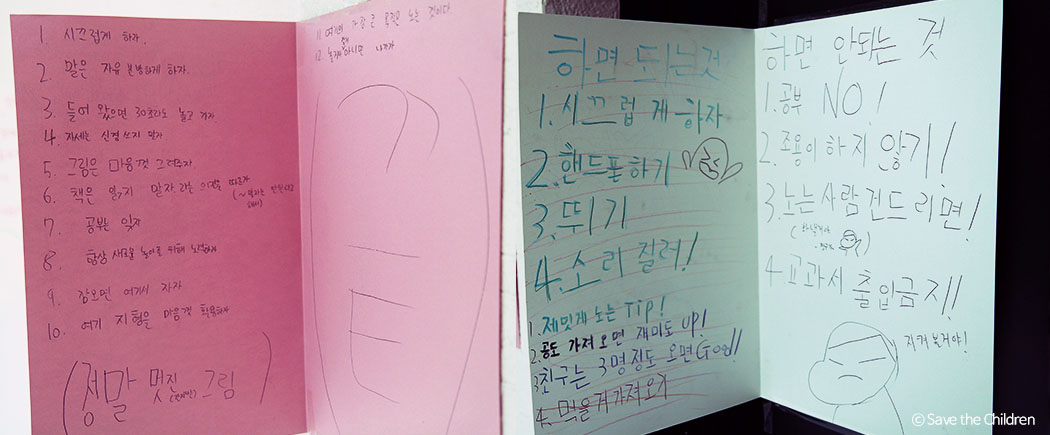 1. 시끄럽게 하자.
2. 말은 자유 분방하게 하자.
3. 들어 왔으면 30초라도 놀고 가자
4. 자세는 신경 쓰지 말자
5. 그림은 마음껏 그려두자
6. 책은 읽지 말자 라는 의견을 따르자
7. 공부는 잊자
8. 항상 새로운 놀이를 위해 노력하자
9. 잠오면 여기서 자자
10. 여기 지형은 마음껏 활용하자
(정말 멋진 그림)
11. 여기의 가장 큰 목적은 노는 것이다
12. 놀게 아니면 나가자
하면 되는것
1. 시끄럽게 하자
2. 핸드폰하기
3. 뛰기
4. 소리 질러!
1. 재밋게 노는 Tip!
2. 공도 가져 오면 재미도 up!
3. 친구는 3명정도 오면 Good!
4. 먹을거 가져오기
하면 안되는 것
1. 공부 NO!
2. 조용이 하지 않기!
3. 노는 사람 건드리면!
4. 교과서 출입금지!
지켜 볼거야!
© Save the Children